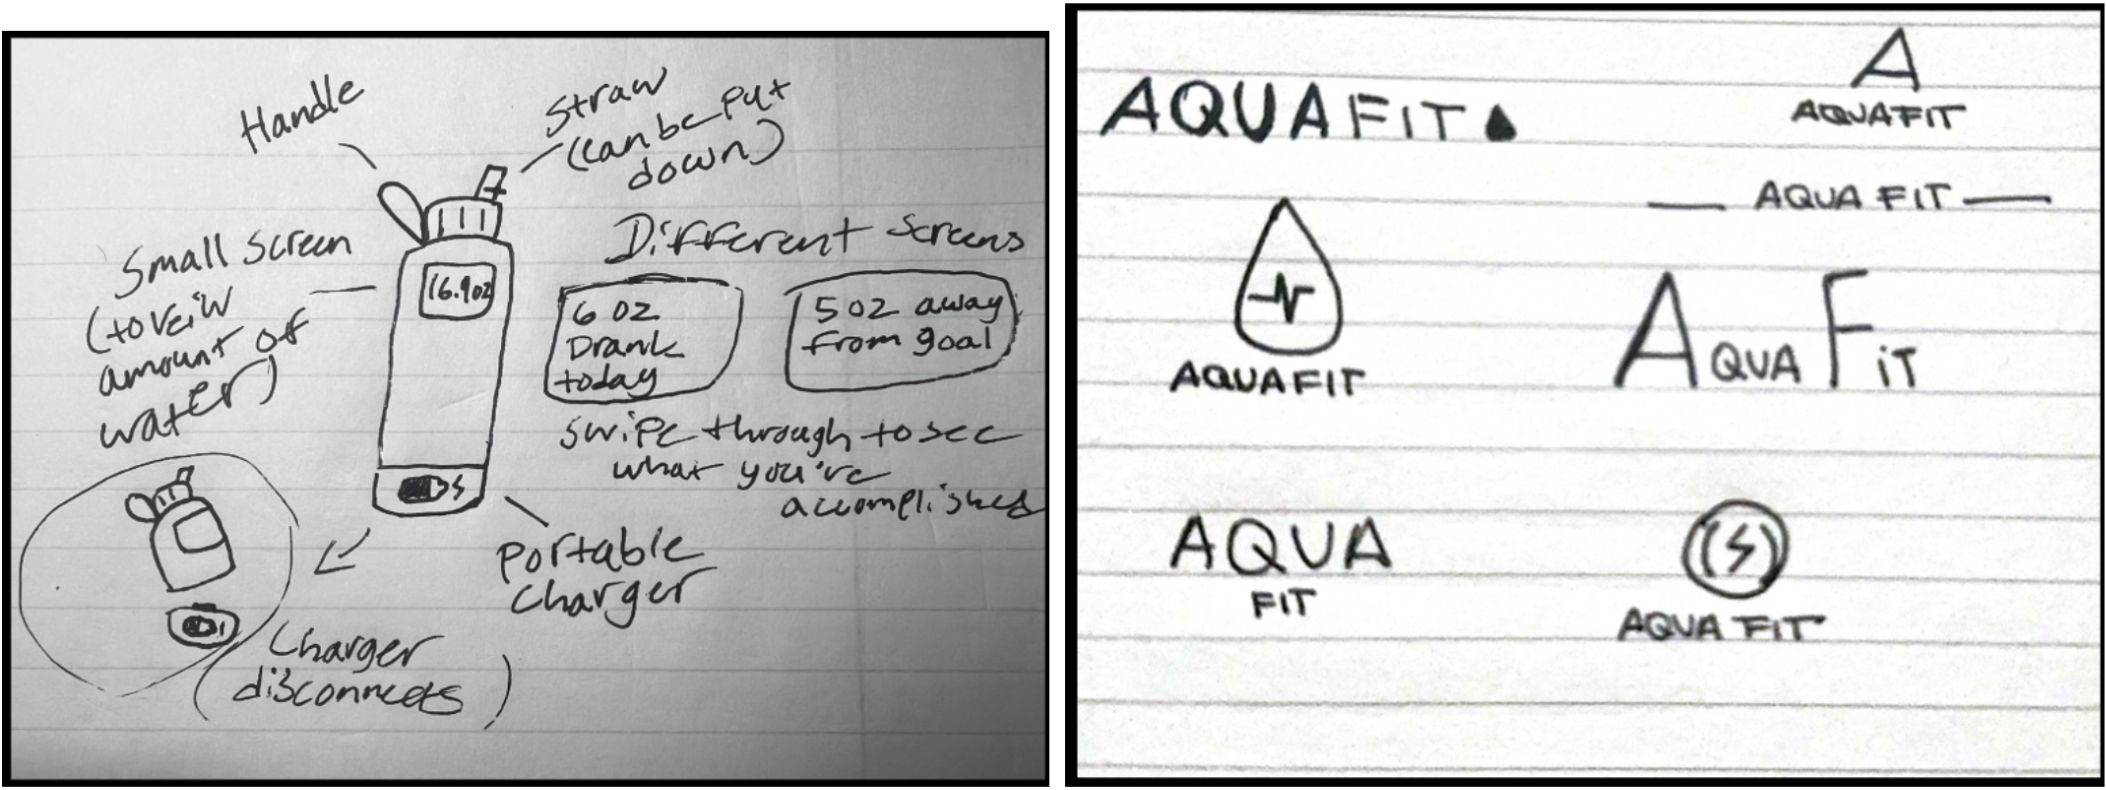 Handle
Straw
(can be put
down)
Small Screen
(to veiw
amount of
water)
16.9oz
Different Screens
6 oz
Drank
today
5 oz away
from goal
swipe through to see
what you've
accomplished
Portable
Charger
Charger
(disconnects)
AQUAFIT
A
AQUAFIT
AQUA FIT
AQUAFIT
AQUA FiT
AQUA
FIT
AQUA FIT